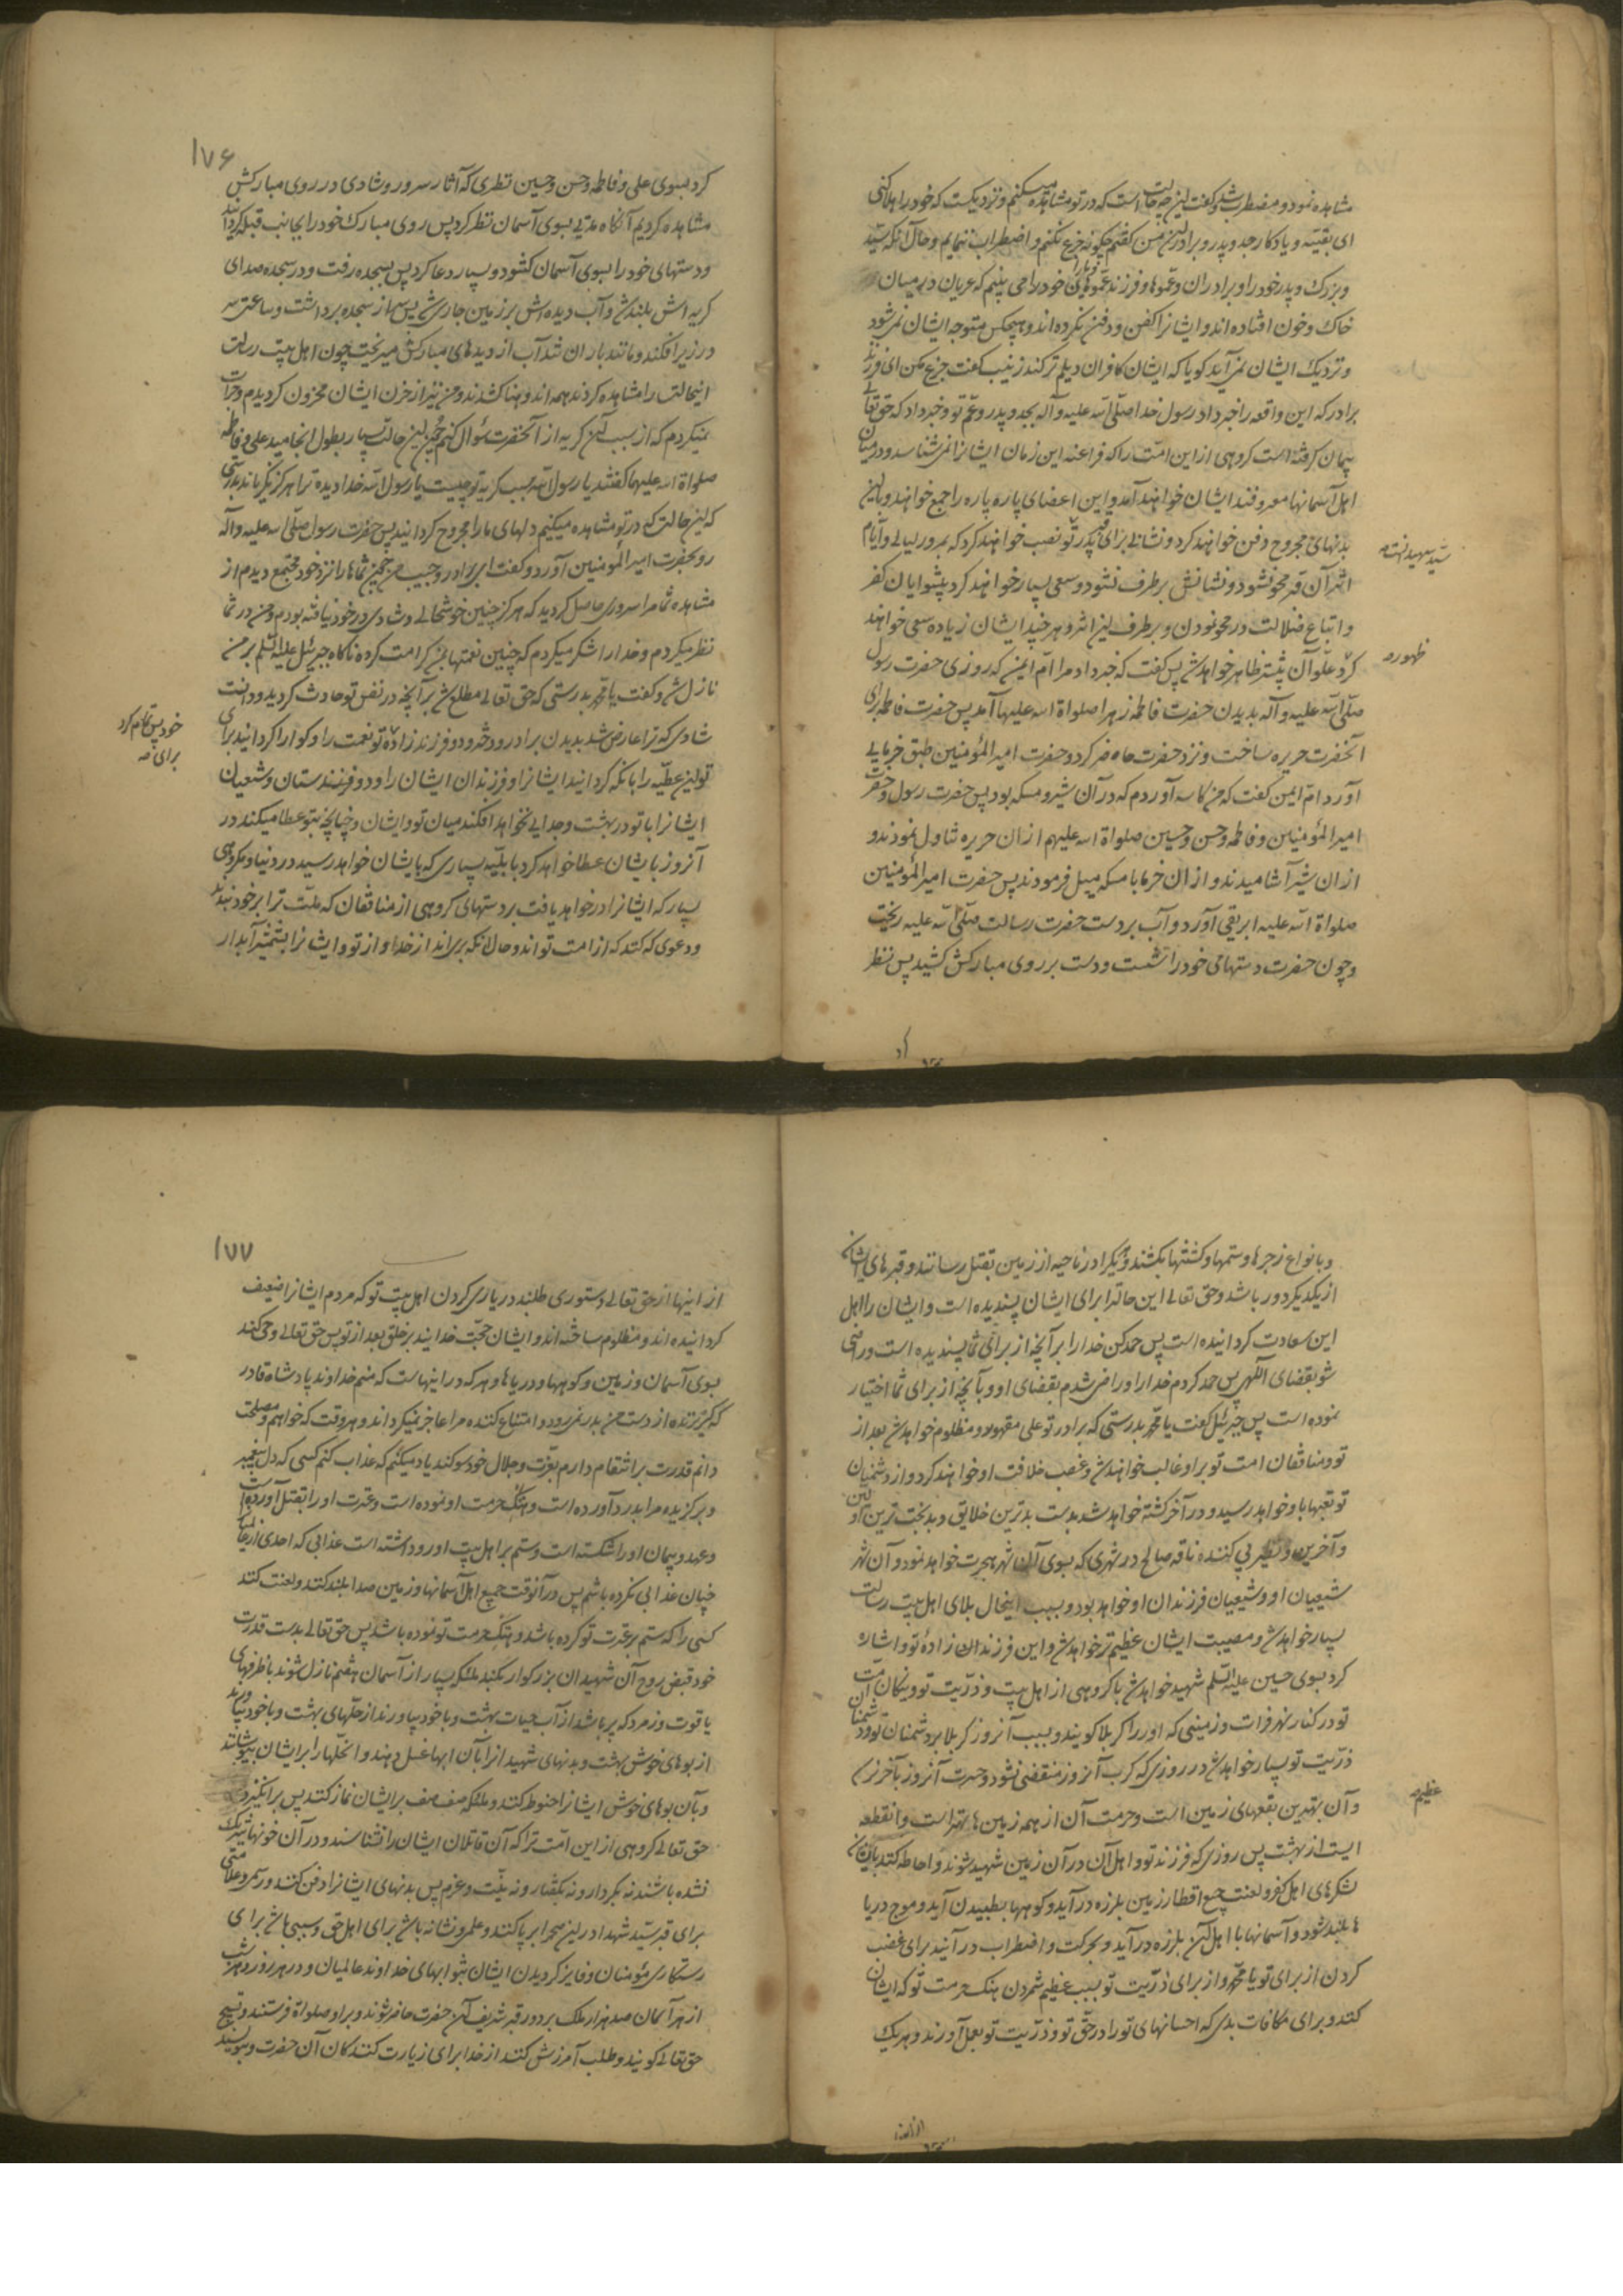 مشاهده نمود و مضطرب شد و گفت این چه حالت است که در تو مشاهده میکنم و نزدیکست که خود را هلاک کنی
ای بقیهٔ و یادگار جد و پدر و برادر من گفتم چگونه جزع نکنم و اضطراب ننمایم و حال آنکه سید
و بزرگ و پدر خود را و برادران و عموها و فرزند عموهای خود را می بینم که عریان در میان
خاک و خون افتاده اند و ایشانرا کفن و دفن نکرده اند و هیچکس متوجه ایشان نمیشود
و نزدیک ایشان نمی آید گویا که ایشان کافران دیلم و ترکند زینب گفت جزع مکن ای فرزند
برادر که این واقعه را خبر داد رسول خدا صلّی الله علیه و آله بجد و پدر و عم تو و خبر داد که حق تعالی
پیمان گرفته است گروهی از این امت را که فراعنه این زمان ایشانرا نمی شناسد و در میان
اهل آسمانها معروفند ایشان خواهند آمد و این اعضای پاره پاره را جمع خواهند و با این
بدنهای مجروح دفن خواهند کرد و نشانی برای قبر پدر تو نصب خواهند کرد که بمرور لیالی و ایام
سید شهدا نسخه
اثر آن قبر محو نشود و نشانش برطرف نشود و سعی بسیار خواهند کرد پیشوایان کفر
و اتباع ضلالت در محو نمودن و برطرف این اثر و هر چند ایشان زیاده سعی خواهند
ظهور و
کرد علو آن بیشتر ظاهر خواهد شد پس گفت که خبر داد مرا ام ایمن که روزی حضرت رسول
صلّی الله علیه و آله بدیدن حضرت فاطمه زهرا صلواة الله علیها آمد پس حضرت فاطمه برای
آنحضرت حریره ساخت و نزد حضرت حاضر کرد و حضرت امیر المؤمنین طبق خرمایی
آورد ام ایمن گفت که من کاسه آوردم که در آن شیر و مسکه بود پس حضرت رسول و حضرت
امیر المؤمنین و فاطمه و حسن و حسین صلواة الله علیهم از ان حریره تناول نمودند و
از ان شیر آشامیدند و از ان خرما با مسکه میل فرمودند پس حضرت امیر المؤمنین
صلواة الله علیه ابریقی آورد و آب بر دست حضرت رسالت صلّی الله علیه ریخت
و چون حضرت دستهای خود را شست و دست بر روی مبارکش کشید پس نظر
۱۷۶
کرد بسوی علی و فاطمه و حسن و حسین نظری که آثار سرور و شادی در روی مبارکش
مشاهده کردیم آنگاه مدتی بسوی آسمان نظر کرد پس روی مبارک خود را بجانب قبله گردانید
و دستهای خود را بسوی آسمان گشود و بسیار دعا کرد پس بسجده رفت و در سجده صدای
گریه اش بلند شد و آب دیده اش بر زمین جاری شد پس سر از سجده برداشت و ساعتی سر
در زیر افکند و مانند باران تند آب از دیدهای مبارکش میریخت چون اهل بیت رسالت
اینحالت را مشاهده کردند همه اندوهناک شدند و من نیز از حزن ایشان محزون گردیدم و جرات
نمیکردم که از سبب آن گریه از آنحضرت سؤال کنم چون این حالت بسیار بطول انجامید علی و فاطمه
صلواة الله علیهما گفتند یا رسول الله سبب گریه تو چیست یا رسول الله خدا دیده ترا هرگز نگریاند بدرستی
که این حالت که در تو مشاهده میکنیم دلهای ما را مجروح گردانید پس حضرت رسول صلّی الله علیه و آله
رو بحضرت امیر المؤمنین آورد و گفت ای برادر و حبیب من چون شماها را نزد خود مجتمع دیدم از
مشاهده شما مرا سروری حاصل گردید که هرگز چنین خوشحالی و شادی در خود نیافته بودم و من در شما
نظر میکردم و خدا را شکر میکردم که چنین نعمتها بمن کرامت کرده ناگاه جبرئیل علیه السلم بر من
نازل شد و گفت یا محمد بدرستی که حق تعالی مطلع شد بر آنچه در نفس تو حادث گردید و دانست
خود پس تمام کرد
برای صه
شادی که ترا عارض شد بدیدن برادر و دختر و دو فرزند زاده تو نعمت را و گوارا گردانید برای
تو این عطیه را بانکه گردانید ایشانرا و فرزندان ایشان را و دوفرزندستان و شیعیان
ایشانرا با تو در بهشت و جدایی نخواهد افکند میان تو و ایشان و چنانچه بتو عطا میکند در
آنروز بایشان عطا خواهد کرد با بلیه بسیاری که بایشان خواهد رسید در دنیا و مکروهی
بسیار که ایشانرا در خواهد یافت بر دستهای گروهی از منافقان که ملت ترا بر خود بندند
و دعوی کنند که از امت تواند و حال آنکه بری اند از خدا و از تو و ایشانرا بشمشیر آبدار
و بانواع زجرها و ستمها و کشتنها بکشند و هر یک را در ناحیه از زمین بقتل رسانند و قبرهای ایشان
از یکدیگر دور باشد و حق تعالی این حالترا برای ایشان پسندیده است و ایشان را اهل
این سعادت گردانیده است پس حمد کن خدا را بر آنچه از برای شما پسندیده است و راضی
شو بقضای الهی پس حمد کردم خدا را و راضی شدم بقضای او و بآنچه از برای شما اختیار
نموده است پس جبرئیل گفت یا محمد بدرستی که برادر تو علی مقهور و مظلوم خواهد شد بعد از
تو و منافقان امت تو بر او غالب خواهند شد و غصب خلافت او خواهند کرد و از دشمنان
تو تعبها باو خواهد رسید و در آخر کشته خواهد شد بدست بدترین خلایق و بدبخت ترین اولین
و آخرین و نظیر پی کننده ناقه صالح در شهری که بسوی آن شهر هجرت خواهد نمود و آن شهر
شیعیان او و شیعیان فرزندان او خواهد بود و بسبب اینحال بلای اهل بیت رسالت
بسیار خواهد شد و مصیبت ایشان عظیم تر خواهد شد و این فرزندان زادهٔ تو و اشاره
کرد بسوی حسین علیه السلم شهید خواهد شد با گروهی از اهل بیت و ذریت تو و نیکان امت
تو در کنار نهر فرات و زمینی که او را کربلا گویند و بسبب آنروز کرب و بلا بر دشمنان تو و دشمنان
ذریت تو بسیار خواهد شد در روزی که کرب آنروز منقضی نشود و حسرت آنروز بآخر نرسد
عظیم
و آن بهترین بقعهای زمین است و حرمت آن از همه زمین ها بهتر است و آنقطعه
ایست از بهشت پس روزی که فرزند تو و اهل آن در آن زمین شهید شوند و احاطه کنند بایشان
لشکرهای اهل کفر و لعنت جمیع اقطار زمین بلرزه در آید و کوهها بطپیدن آید و موج دریا
ها بلند شود و آسمانها با اهل آن بلرزه در آید و بحرکت و اضطراب در آیند برای غضب
کردن از برای تو یا محمد و از برای ذریت تو بسبب عظیم شمردن هتک حرمت تو که ایشان
کنند و برای مکافات بدی که احسانهای تو را در حق تو و ذریت تو بعمل آورند و هر یک
۱۷۷
از اینها از حق تعالی دستوری طلبند در یاری کردن اهل بیت تو که مردم ایشانرا ضعیف
گردانیده اند و مظلوم ساخته اند و ایشان حجت خدایند بر خلق بعد از تو پس حق تعالی وحی کند
بسوی آسمان و زمین و کوهها و دریاها و هر که در اینهاست که منم خداوند پادشاه قادر
که گریزنده از دست من بدر نمیرود و امتناع کننده مرا عاجز نمیگرداند و هر وقت که خواهم و مصلحت
دانم قدرت بر انتقام دارم بعزت و جلال خود سوگند یاد میکنم که عذاب کنم کسی که دل پیغمبر
و برگزیده مرا بدرد آورده است و هتک حرمت او نموده است و عترت او را بقتل آورده است
و عهد و پیمان او را شکسته است و ستم بر اهل بیت او روا داشته است عذابی که احدی از عالمیان
چنان عذابی نکرده باشم پس در آنوقت جمیع اهل آسمانها و زمین صدا بلند کنند و لعنت کنند
کسی را که ستم بر عترت تو کرده باشد و هتک حرمت تو نموده باشد پس حق تعالی بدست قدرت
خود قبض روح آن شهیدان بزرگوار بکند ملئکه بسیار از آسمان هفتم نازل شوند با ظرفهای
یاقوت و زمرد که پر باشد از آب حیات بهشت و با خود بیاورند از حلهای بهشت و با خود بیاورند
از بوهای خوش بهشت و بدنهای شهید انرا بآن آبها غسل دهند و آنحلها را بر ایشان بپوشانند
و بآن بوهای خوش ایشانرا حنوط کنند و ملئکه صف صف بر ایشان نماز کنند پس برانگیزد
حق تعالی گروهی از این امت ترا که آن قاتلان ایشان را نشناسند و در آن خونها شریک
نشده باشند نه بکردار و نه بگفتار و نه بنیت و عزم پس بدنهای ایشانرا دفن کنند و رسمی و علامتی
برای قبر سید شهدا در این صحرا بر پا کنند و علمی و نشانه باشد برای اهل حق و سببی باشد برای
رستگاری مؤمنان و فایز گردیدن ایشان بثوابهای خداوند عالمیان و در هر روز و هر شب
از هر آسمان صد هزار ملک بر دور قبر شریف آن حضرت حاضر شوند و بر او صلواة فرستند و تسبیح
حق تعالی گویند و طلب آمرزش کنند از خدا برای زیارت کنندگان آن حضرت و بنویسند